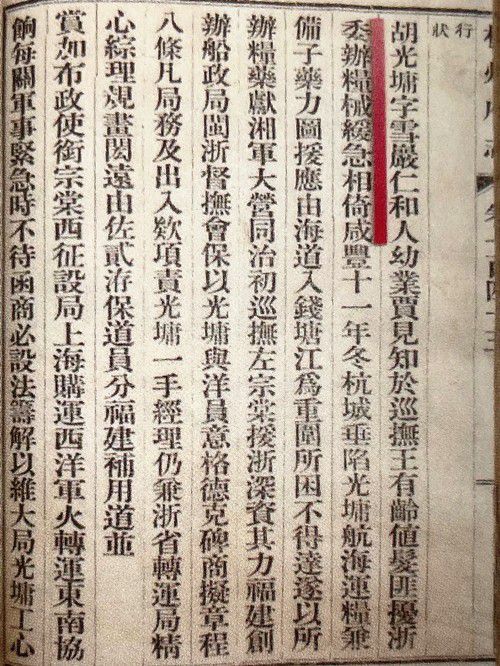 行狀
胡光墉字雪巖仁和人幼業賈見知於巡撫王有齡值髮匪擾浙
委辦糧械緩急相倚咸豐十一年冬杭城垂陷光墉航海運糧兼
備子藥力圖援應由海道入錢塘江爲重圍所困不得達遂以所
辦糧藥獻湘軍大營同治初巡撫左宗棠援浙深資其力福建創
辦船政局閩浙督撫會保以光墉與洋員意格德克碑商擬章程
八條凡局務及出入欵項責光墉一手經理仍兼浙省轉運局精
心綜理規畫閎遠由佐貳洊保道員分福建補用道並
賞加布政使銜宗棠西征設局上海購運西洋軍火轉運東南協
餉每關軍事緊急時不待函商必設法籌解以維大局光墉工心